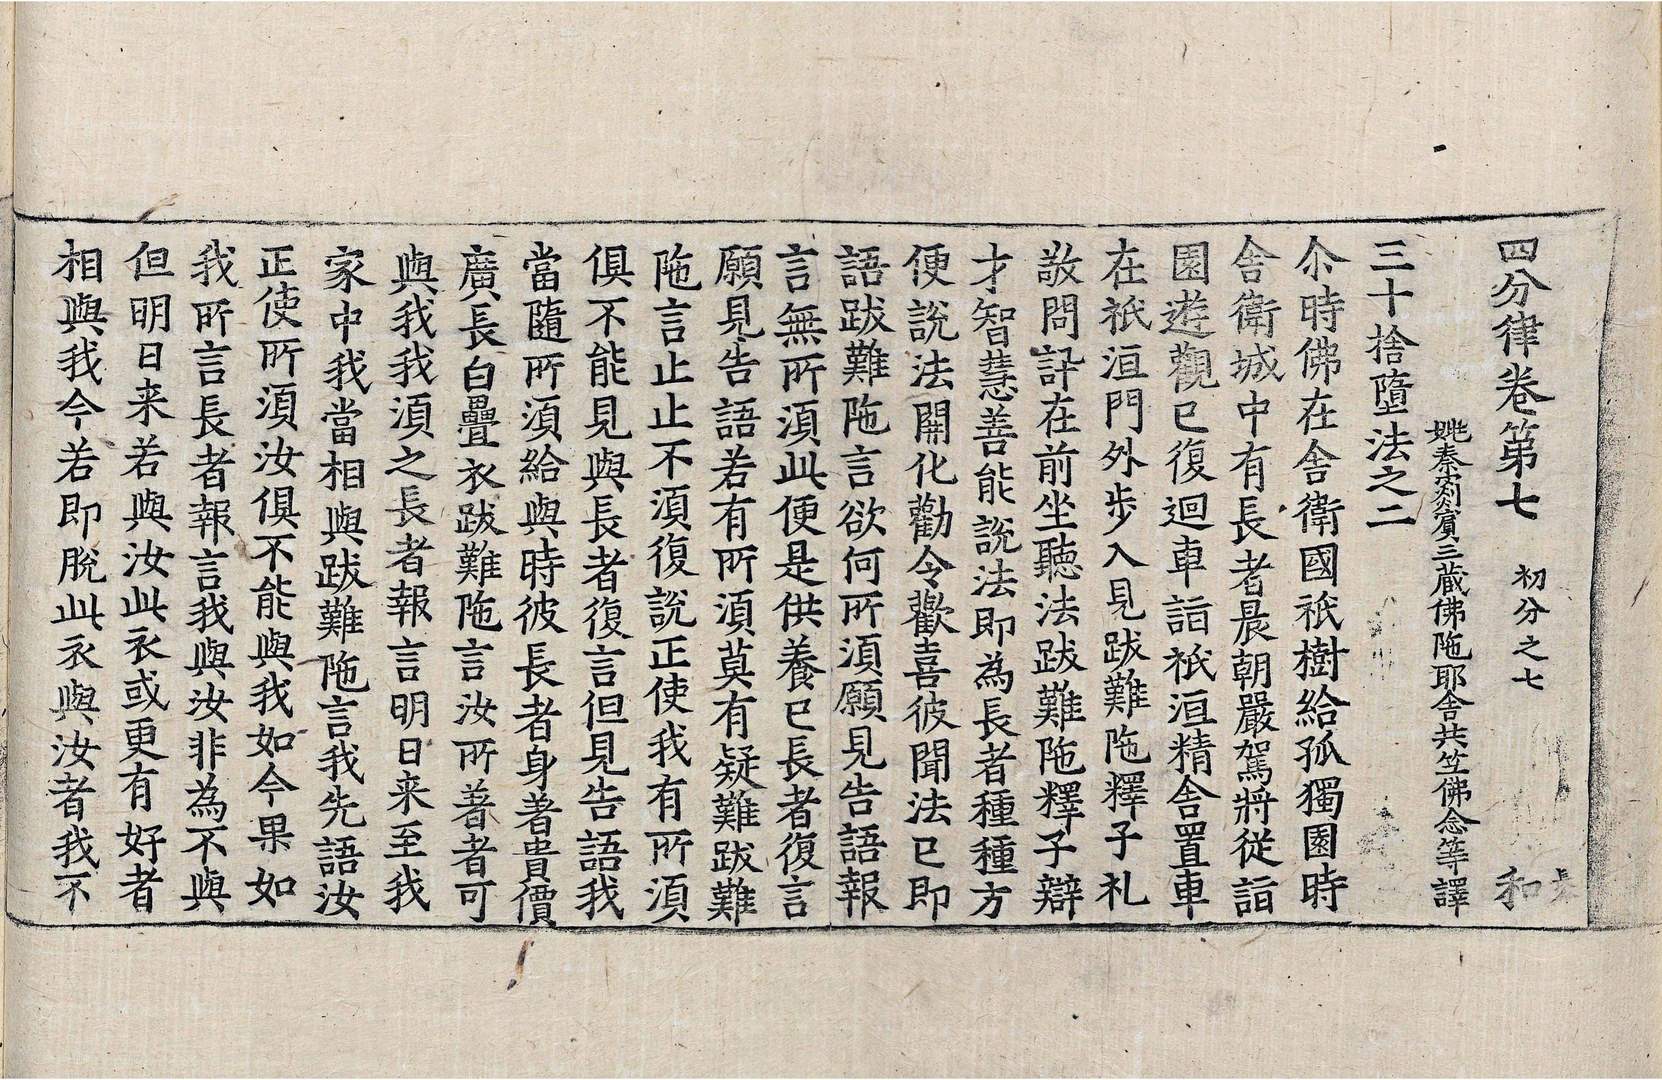 四分律卷第七 初分之七 和
姚秦罽賓三藏佛陁耶舍共竺佛念等譯
三十捨墮法之二
尒時佛在舍衛國祇樹給孤獨園時
舍衛城中有長者晨朝嚴駕將從詣
園遊觀已復迴車詣祇洹精舍置車
在祇洹門外步入見跋難陁釋子礼
敬問訊在前坐聽法跋難陁釋子辯
才智慧善能說法即為長者種種方
便說法開化勸令歡喜彼聞法已即
語跋難陁言欲何所須願見告語報
言無所須此便是供養已長者復言
願見告語若有所須莫有疑難跋難
陁言止止不須復說正使我有所須
俱不能見與長者復言但見告語我
當隨所須給與時彼長者身著貴價
廣長白疊衣跋難陁言汝所著者可
與我我須之長者報言明日来至我
家中我當相與跋難陁言我先語汝
正使所須汝俱不能與我如今果如
我所言長者報言我與汝非為不與
但明日来若與汝此衣或更有好者
相與我今若即脫此衣與汝者我不